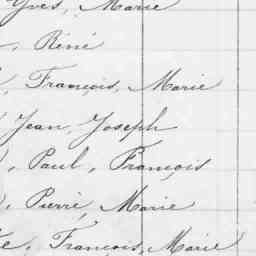 Yves, Marie
, René
, François, Marie
Jean, Joseph
, Paul, François
, Pierre, Marie
, François, Marie